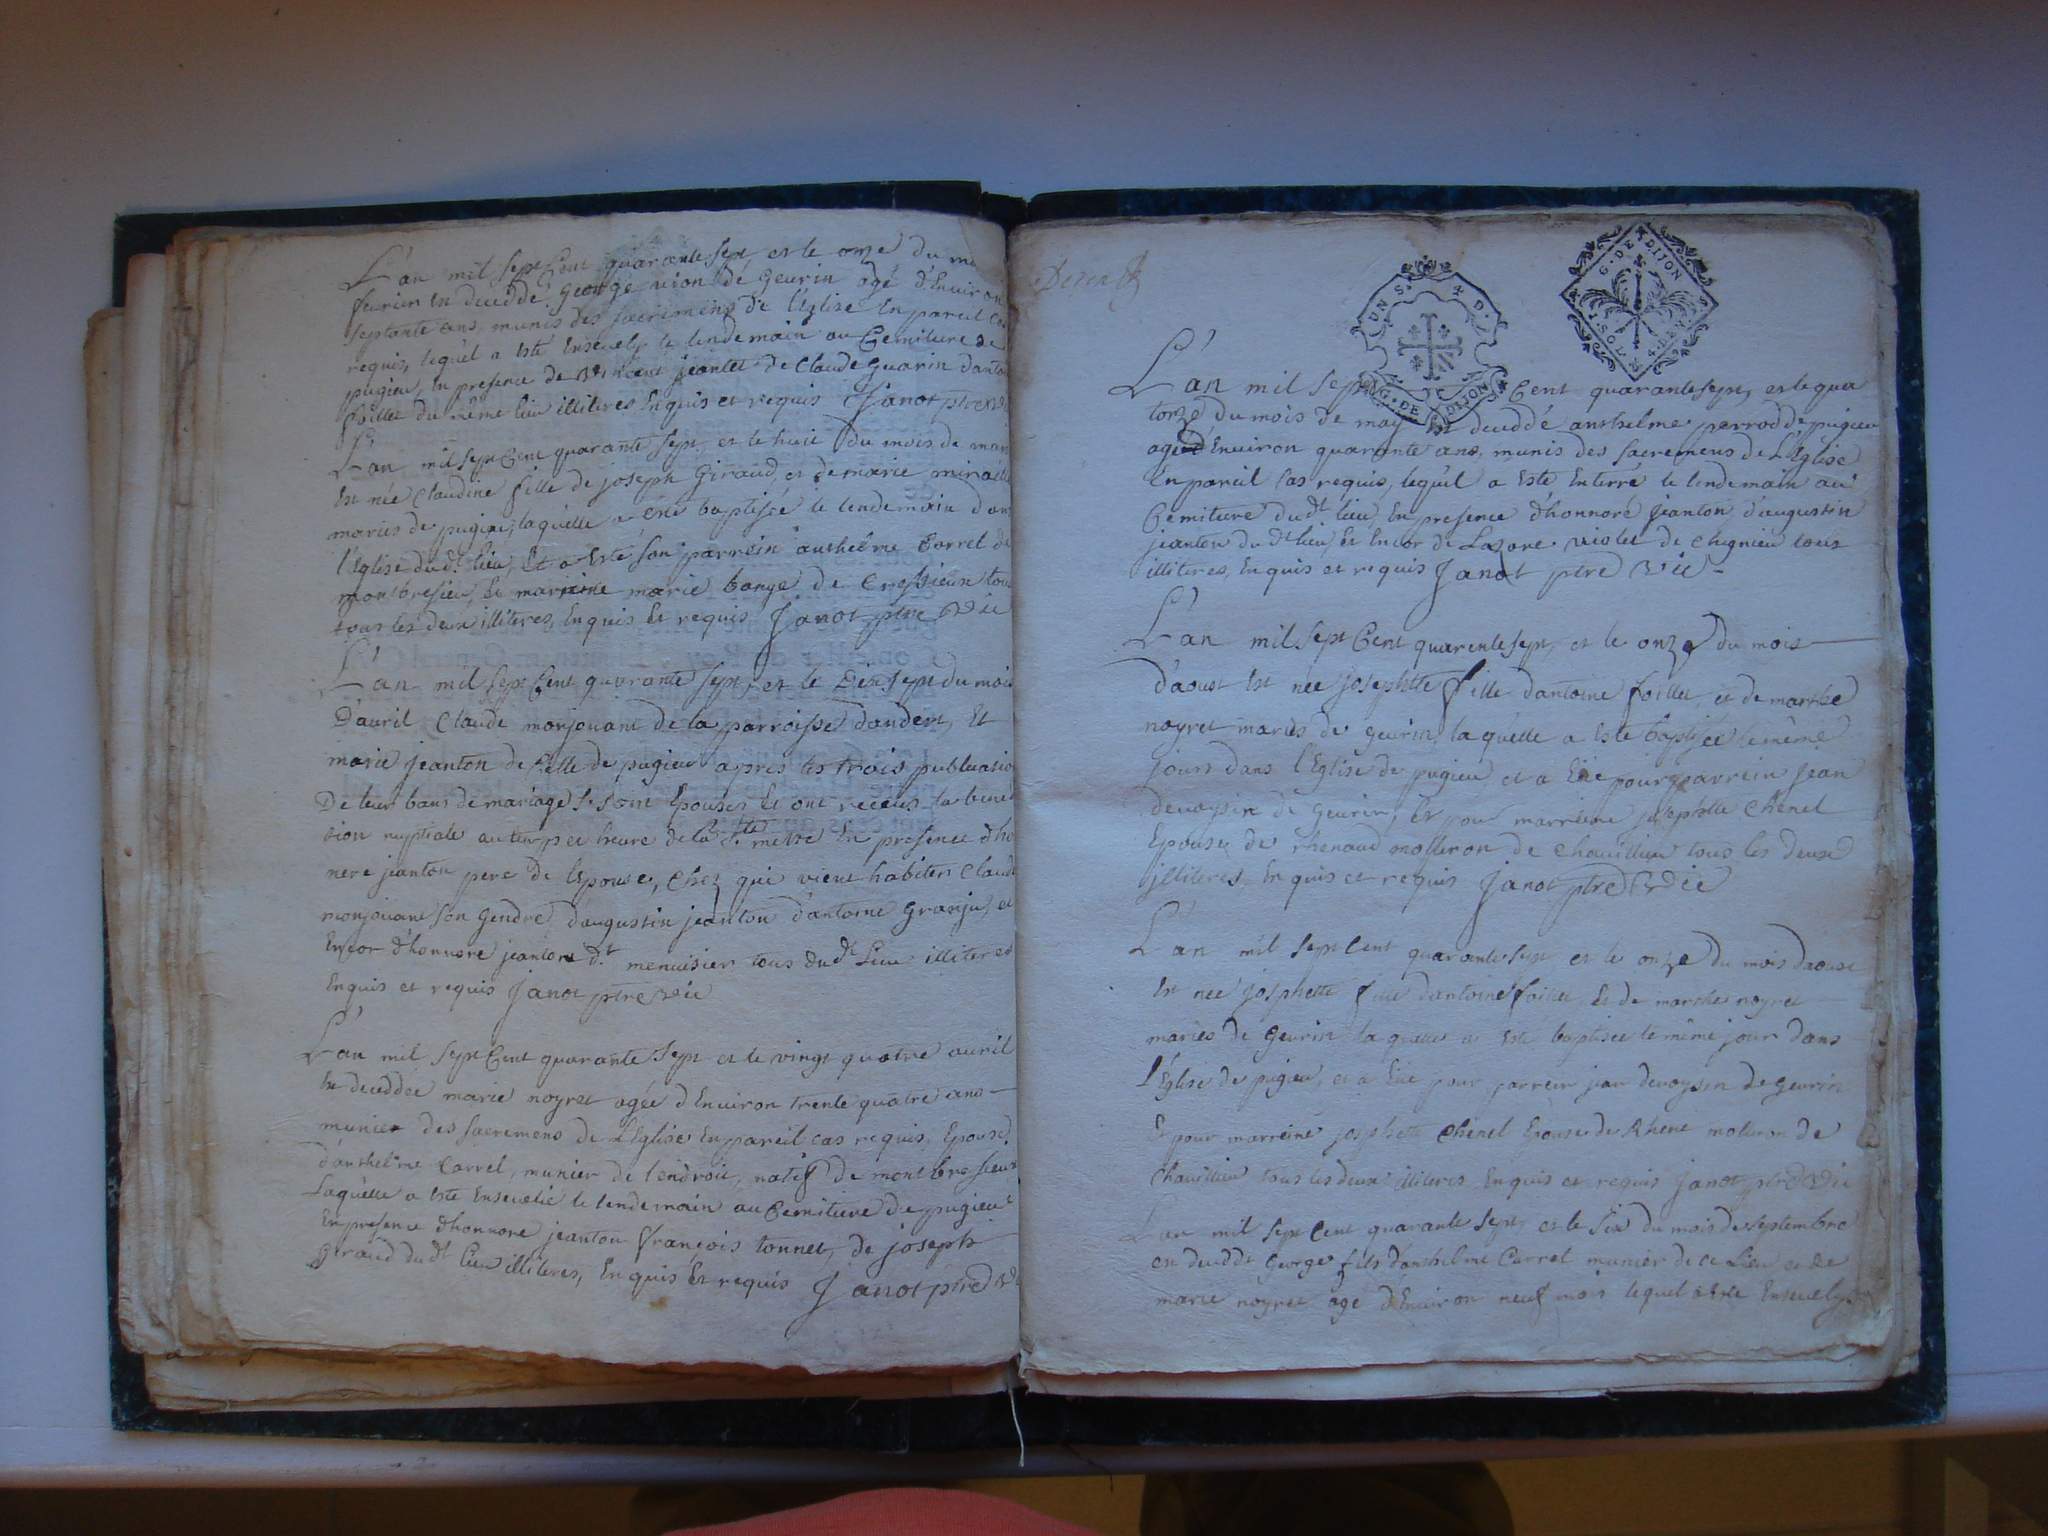 L'an mil sept Cent quarante sept, et le onze du
fevrier est deceddé George de Geurin agé d'Environ
septante ans, munis des sacremens de l'Eglise En pareil
requis, lequel a esté Ensevely le lendemain au Cemitiere de
pugieu, En presence de jeanton de Claude Guarin d'antoi
foillet du même lieu illiteres Enquis et requis Janot ptre vic
L'an mil sept Cent quarante sept, et le huit du mois de mars
Est née Claudine fille de joseph Giraud, et de marie miraille
mariés de pugieu, laquelle a été baptisée le lendemain dans
l'Eglise dud.t lieu, Et a esté son parrein anthelme Carrel de
montbresieu, Et marreine marie bange de Cressieux tou
tous les deux illiteres, Enquis Et requis Janot ptre vic
L'an mil sept Cent quarante sept, et le Dix sept du mois
D'avril Claude monjouant de la parroisse d'andert, Et
marie jeanton de Celle de pugieu apres les trois publicatio
De leur bans de mariage se sont Epousés Et ont receus la bened
tion nuptiale au temps et heure de la S.te messe En presence d'ho
noré jeanton pere de l'Epouse, Chez qui vient habiter Claude
monjouant son Gendre, d'augustin jeanton d'antoine Granju, et
Encor d'honnoré jeanton d.t menuisier tous dud.t Lieu illiteres
Enquis et requis Janot ptre vic
L'an mil sept Cent quarante sept et le vingt quatre avril
Est deceddée marie noyret agée d'Environ trente quatre ans
munies des sacremens de L'Eglise En pareil cas requis, Epouse
d'anthelme Carrel, munier de l'endroit, natif de montbresieux
Laquelle a esté Ensevelie le lendemain au Cemitiere de pugieu
En presence d'honnoré jeanton françois tonnet, de joseph
Giraud dud.t lieu illiteres, Enquis Et requis Janot ptre vi
G. DE DIJON
UN S. 4 D.
G. DE DIJON
L'an mil sept Cent quarante sept, et le qua
torze du mois de may Est deceddé anthelme perrod de pugieu
agé d'Environ quarante ans, munis des sacremens de L'Eglise
En pareil Cas requis, lequel a Esté Enterré le lendemain au
Cemitiere dud.t lieu, En presence d'honnoré jeanton d'augustin
jeanton du d.t lieu, Et Encor de Lazare violet de Chignieu tous
illiteres, Enquis et requis Janot ptre vic
L'an mil sept Cent quarente sept, et le onze du mois
d'aoust Est née josephtte fille d'antoine foillet, et de marthe
noyret mariés de Geurin, laquelle a Esté baptisée le même
jours dans l'Eglise de pugieu, et a Eue pour parrein jean
devoysin de Geurin, Et pour marreine josephtte Chenel
Epouse de rhenaud molleron de Chavillieu tous les deux
illiteres, Enquis et requis Janot ptre vic
L'an mil sept Cent quarante sept et le onze du mois d'aoust
Est née josphette fille d'antoine foillet, Et de marthe noyret
mariés de Geurin laquelle a Esté baptisée le même jour dans
l'Eglise de pugieu, et a Eue pour parrein jean devoysin de Geurin
Et pour marreine josphette Chenel Epouse de Rhene molleron de
Chavillieu tous les deux illiteres Enquis et requis Janot ptre vic
L'an mil sept Cent quarante sept, et le six du mois de septembre
est deceddé George fils d'anthelme Carrel munier de ce Lieu et de
marie noyret agé d'Environ neuf mois lequel a esté Ensevely